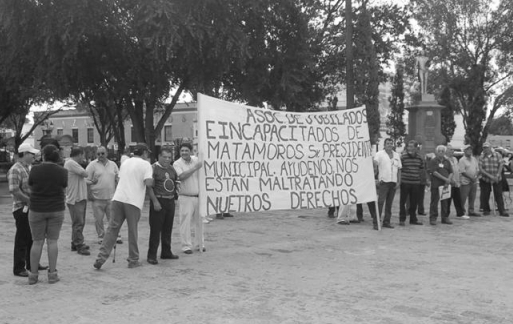 ASOC. DE JUBILADOS
E INCAPACITADOS DE
MATAMOROS SR PRESIDENTE
MUNICIPAL. AYUDENOS, NOS
ESTAN MALTRATANDO
NUETROS DERECHOS